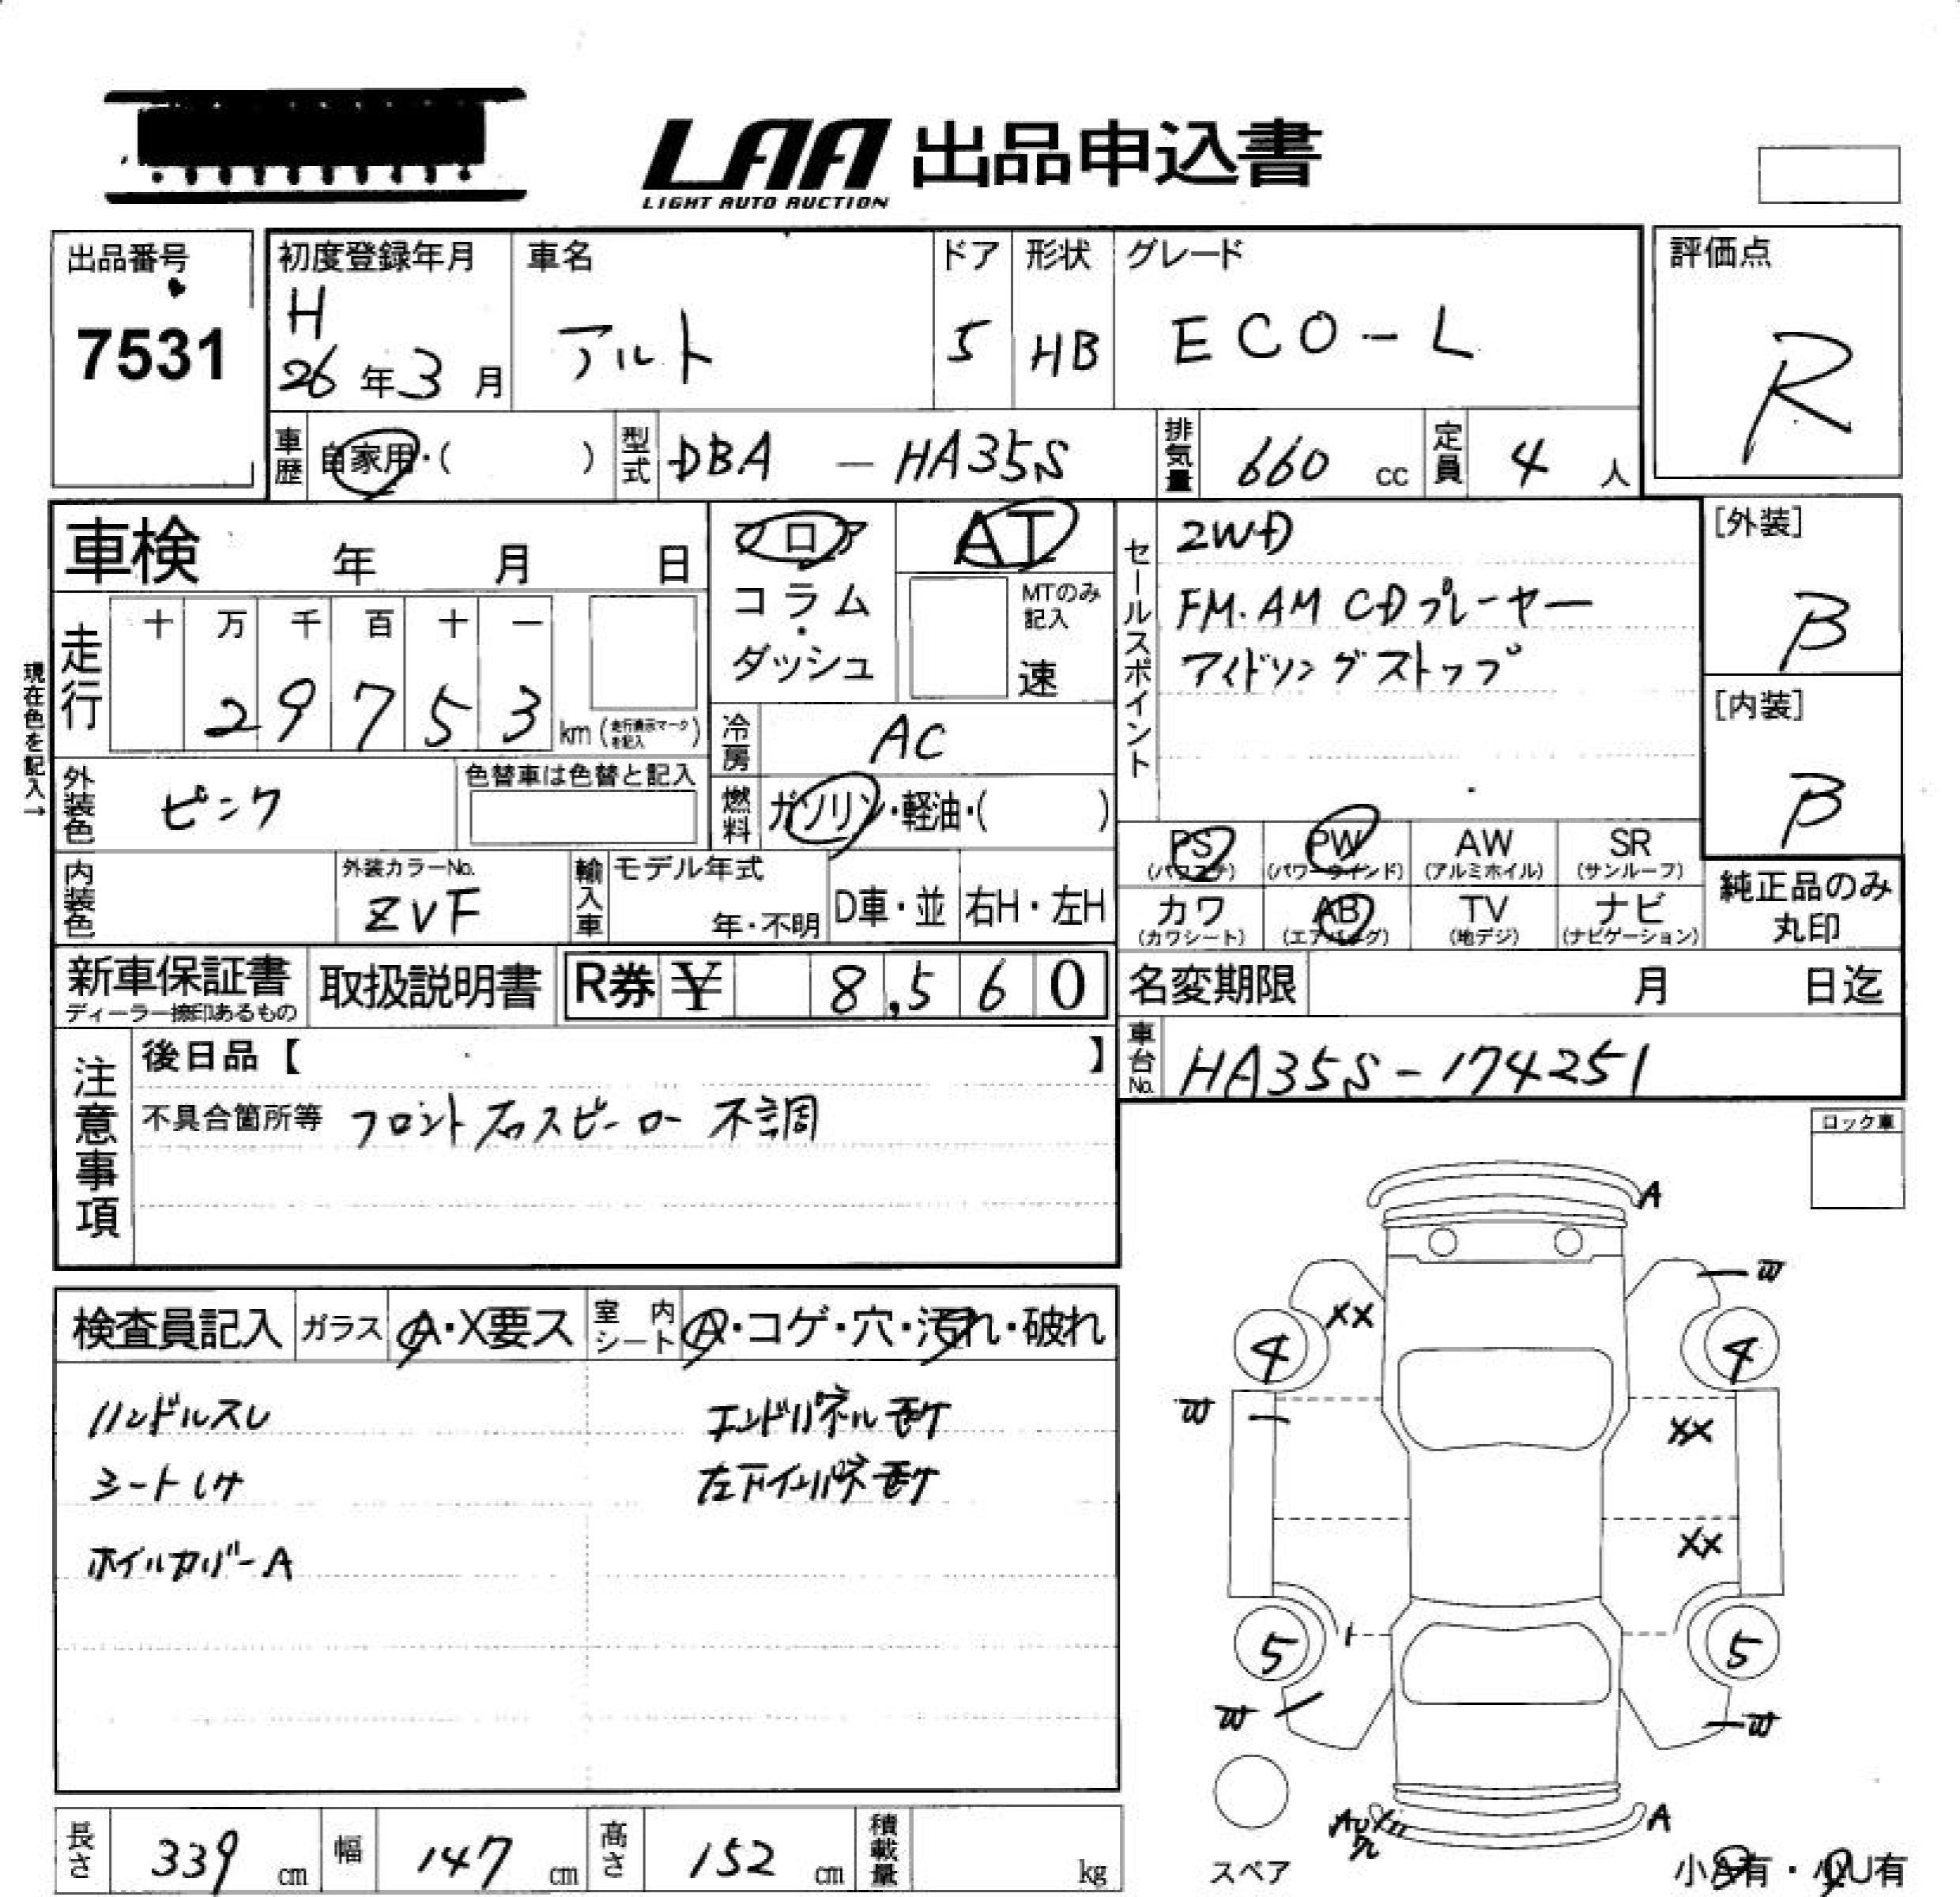 LAA 出品申込書
LIGHT AUTO AUCTION
出品番号
7531
初度登録年月
H
26年3月
車名
アルト
ドア
5
形状
HB
グレード
ECO-L
評価点
R
車歴 自家用・( )
型式 DBA - HA35S
排気量 660 cc
定員 4 人
車検 年 月 日
フロア
コラム
・
ダッシュ
AT
MTのみ
記入
速
セールスポイント
2WD
FM.AM CDプレーヤー
アイドリングストップ
[外装]
B
[内装]
B
現在色を記入→
走行
十 万 千 百 十 一
2 9 7 5 3 km (走行表示マークを記入)
冷房 AC
燃料 ガソリン・軽油・( )
外装色 ピンク
色替車は色替と記入
内装色
外装カラーNo.
ZVF
輸入車
モデル年式
年・不明
D車・並
右H・左H
PS
(パワステ)
PW
(パワーウインド)
AW
(アルミホイル)
SR
(サンルーフ)
カワ
(カワシート)
AB
(エアバッグ)
TV
(地デジ)
ナビ
(ナビゲーション)
純正品のみ
丸印
新車保証書
ディーラー捺印あるもの
取扱説明書
R券 ¥ 8,560
名変期限 月 日迄
車台No. HA35S-174251
注意事項
後日品【 】
不具合箇所等 フロント右スピーカー 不調
ロック車
検査員記入
ガラス A・X要ス
室内シート A・コゲ・穴・汚れ・破れ
ハンドルスレ
シート
ホイルカバーA
エンドパネル
左下インパネ
A
W
XX
4
4
W
XX
XX
5
5
W
W
A
A
スペア
小A有・小U有
長さ 339 cm
幅 147 cm
高さ 152 cm
積載量 kg